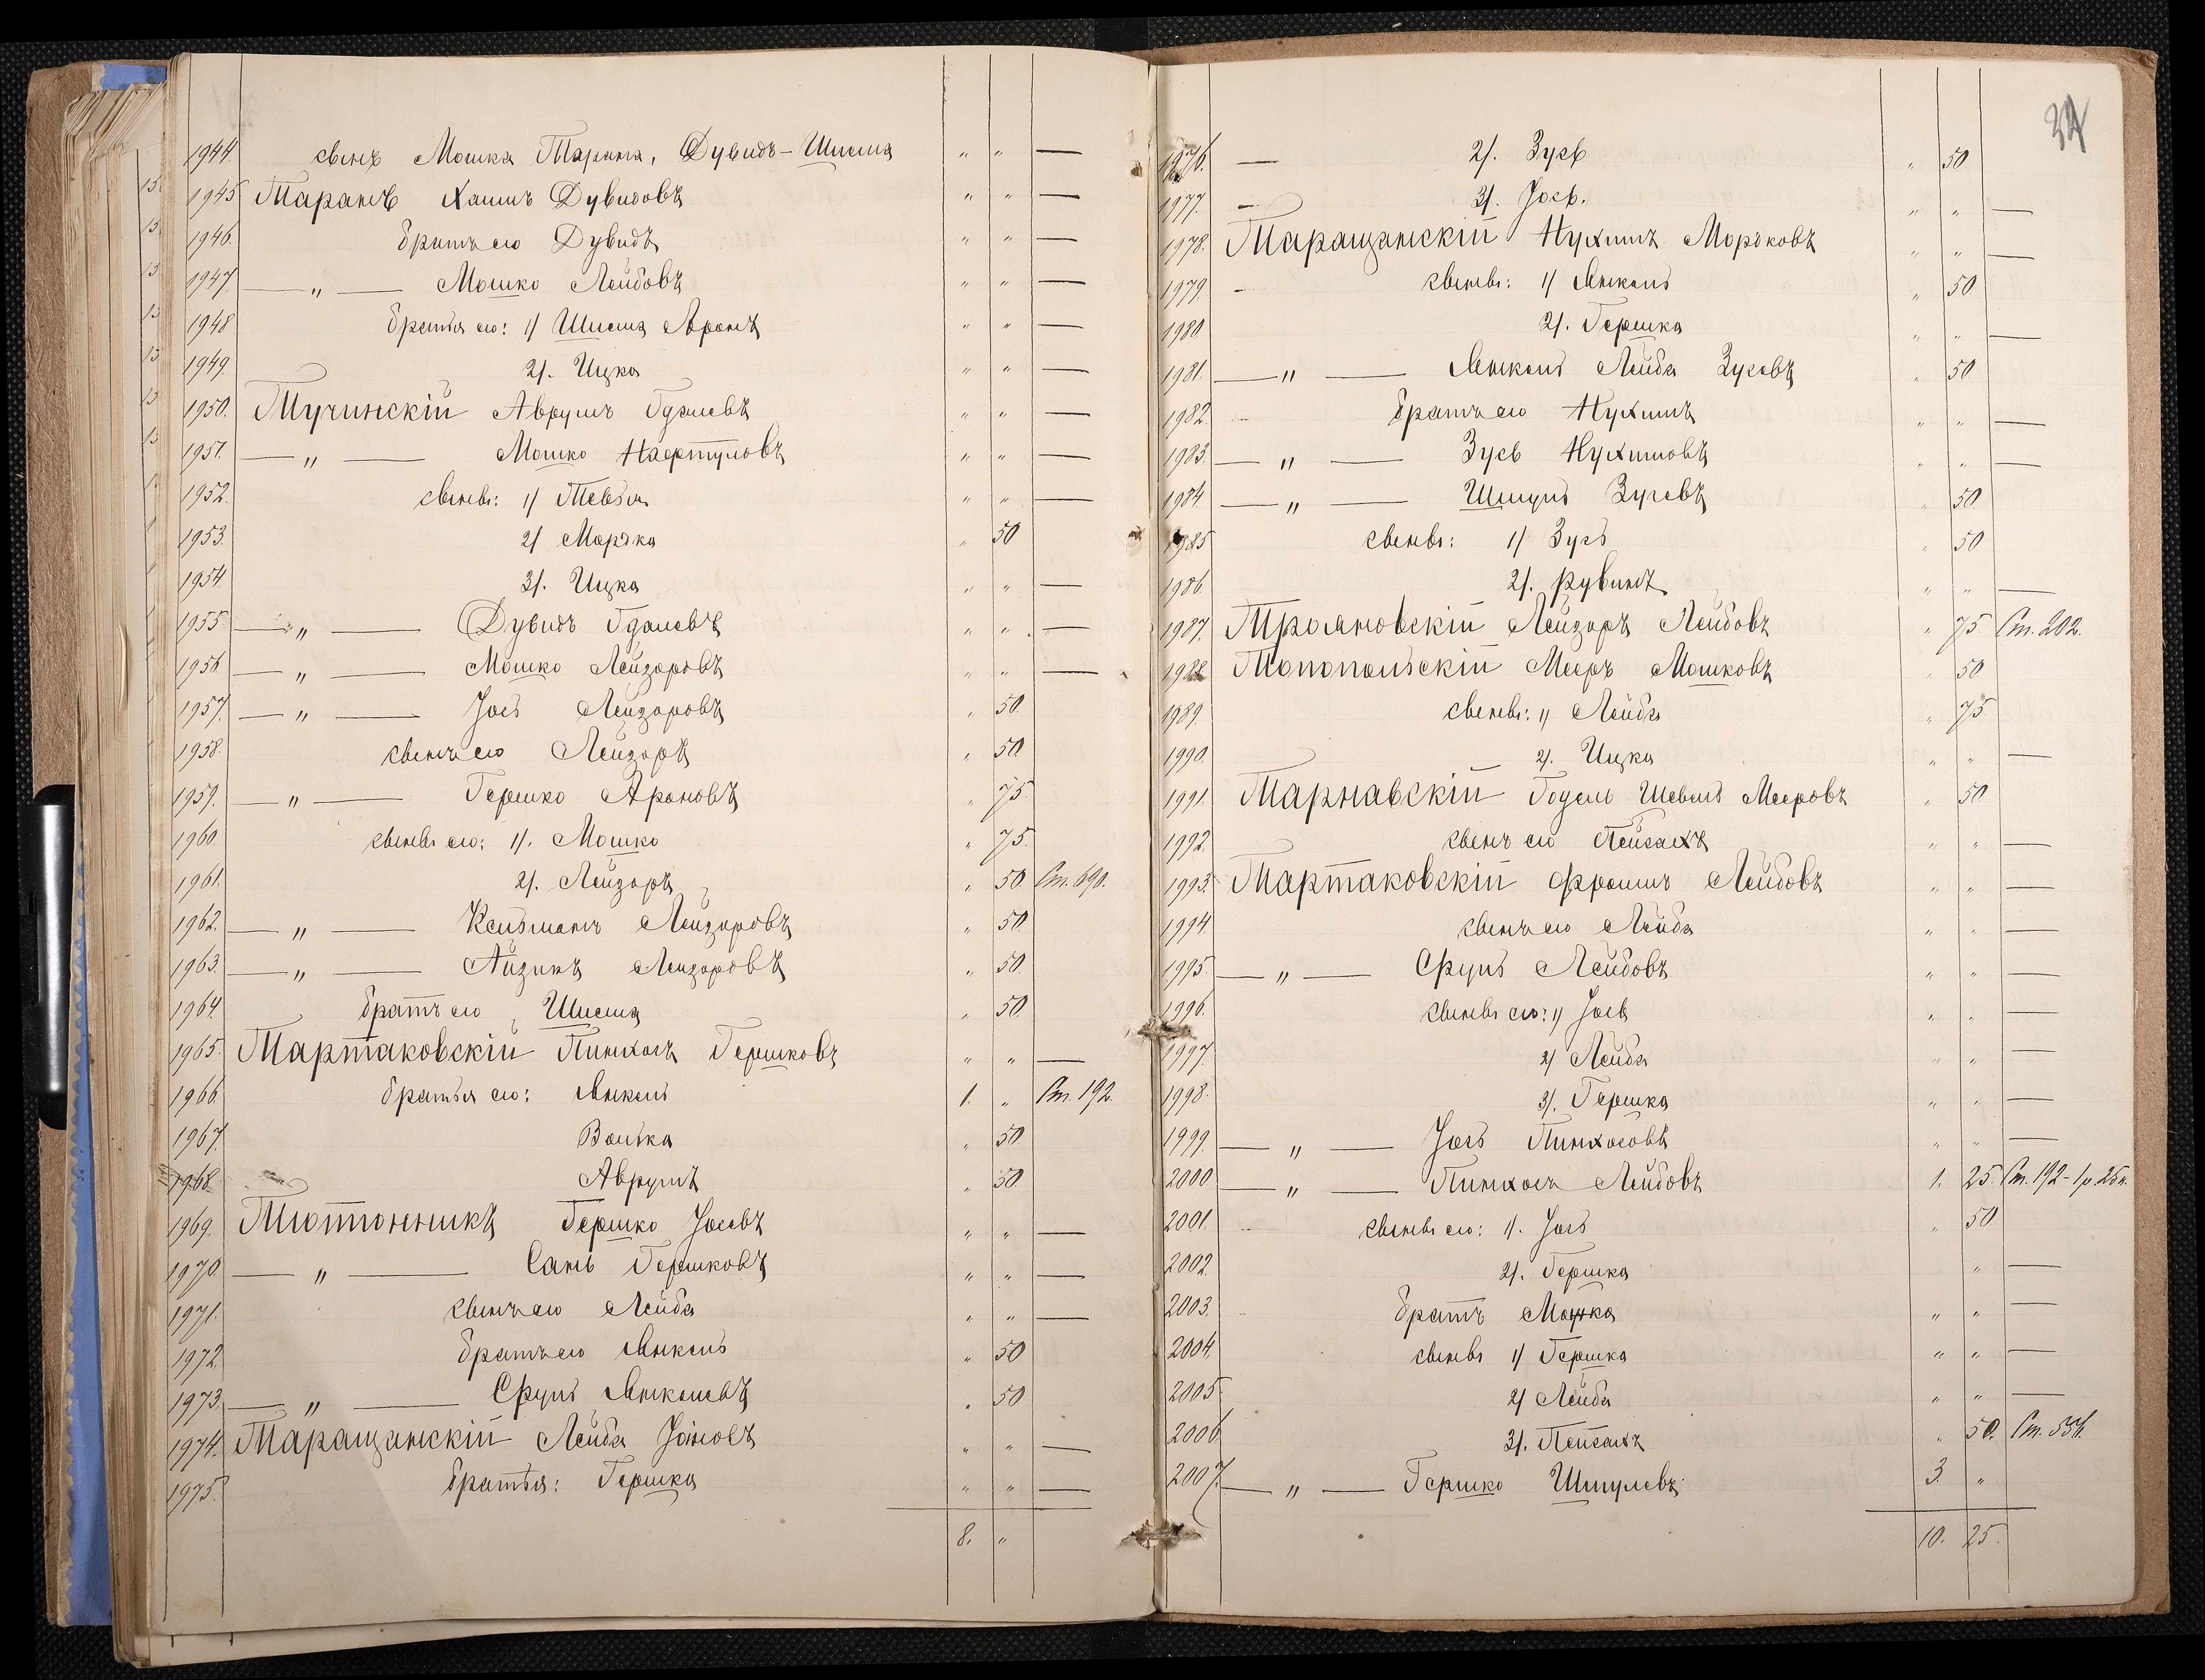 1944. сынъ Мошка Тарана, Дувидъ-Шисма " " —
1945 Таранъ Хаимъ Дувидовъ " " —
1946. братъ его Дувидъ " " —
1947. — " — Мошко Лейбовъ " " —
1948 братья его: 1/ Шисма Аронъ " " —
1949. 2/. Ицка " " —
1950. Тучинскій Аврумъ Гдалевъ " " —
1951. — " — Мошко Нафтуловъ " " —
1952. сыновья: 1/ Тевья " " —
1953. 2/ Моръка " 50
1954. 3/. Ицка " " —
1955. — " — Дувидъ Гдалевъ " " —
1956 — " — Мошко Лейзоровъ " " —
1957. — " — Іось Лейзоровъ " 50.
1958. сынъ его Лейзоръ " 50.
1959. — " — Гершко Ароновъ " 75.
1960. сыновья его: 1/. Мошко " 75.
1961. 2/. Лейзоръ " 50. Ст. 690.
1962. — " — Кельманъ Лейзоровъ " 50.
1963. — " — Айзикъ Лейзоровъ " 50.
1964 братъ его Шисма " 50.
1965. Тартаковскій Пинхосъ Гершковъ " " —
1966 братья его: Янкель 1. " Ст. 192.
1967. Волька " 50
1968 Аврумъ " 50
1969. Тютюнникъ Гершко Іосевъ " " —
1970. — " — Сань Гершковъ " " —
1971. сынъ его Лейба " " —
1972. братъ его Янкель " 50
1973. — " — Сруль Янкелевъ " 50
1974. Таращанскій Лейба Іоновъ " " —
1975. братья: Гершка " " —
8. "
34
1976. — 2/. Зусь " 50
1977. — 3/. Іось. " " —
1978. Таращанскій Нухимъ Моръковъ " " —
1979. — сыновья: 1/ Янкель " 50
1980. 2/. Гершка " " —
1981. — " — Янкель Лейба Зусевъ " 50
1982. братъ его Нухимъ " " —
1983. — " — Зусь Нухимовъ " " —
1984 — " — Шмуль Зусевъ " 50
1985 сыновья: 1/ Зусь " 50
1986. 2/. Рувинъ " " —
1987. Трояновскій Лейзоръ Лейбовъ " 75 Ст. 202.
1988 Топопольскій Мееръ Мошковъ " 50
1989. сыновья: 1/ Лейба " 75
1990. 2/. Ицка " " —
1991. Тарнавскій Годель Шевель Мееровъ " 50
1992. сынъ его Пейсахъ " " —
1993. Тартаковскій Фроимъ Лейбовъ " " —
1994. сынъ его Лейба " " —
1995. — " — Сруль Лейбовъ " " —
1996. сыновья его: 1/ Іось " " —
1997. 2/ Лейба " " —
1998. 3/. Гершка " " —
1999. — " — Іось Пинхосовъ " " —
2000 — " — Пинхосъ Лейбовъ 1. 25. Ст. 192 - 1 р. 25 к.
2001. сыновья его: 1/. Іось " 50
2002. 2/. Гершка " —
2003. братъ Мошка " " —
2004. сыновья 1/ Гершка " " —
2005 2/ Лейба " " —
2006 3/. Пейсахъ " 50. Ст. 556.
2007. — " — Гершко Шмулевъ 3 "
10. 25.